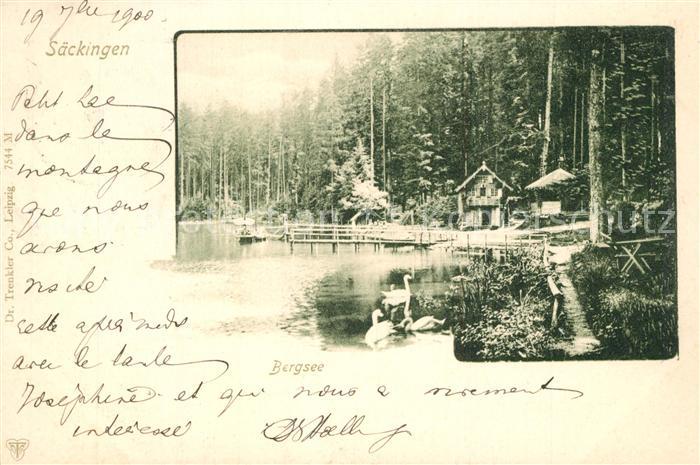 19 7bre 1900.
Säckingen
Petit lac
dans la
montagne
que nous
avons
visité
cette après midi
avec le tante
Joséphine et qui nous a vivement
intéressé
Bergsee
Dr. Trenkler Co., Leipzig 7544 M